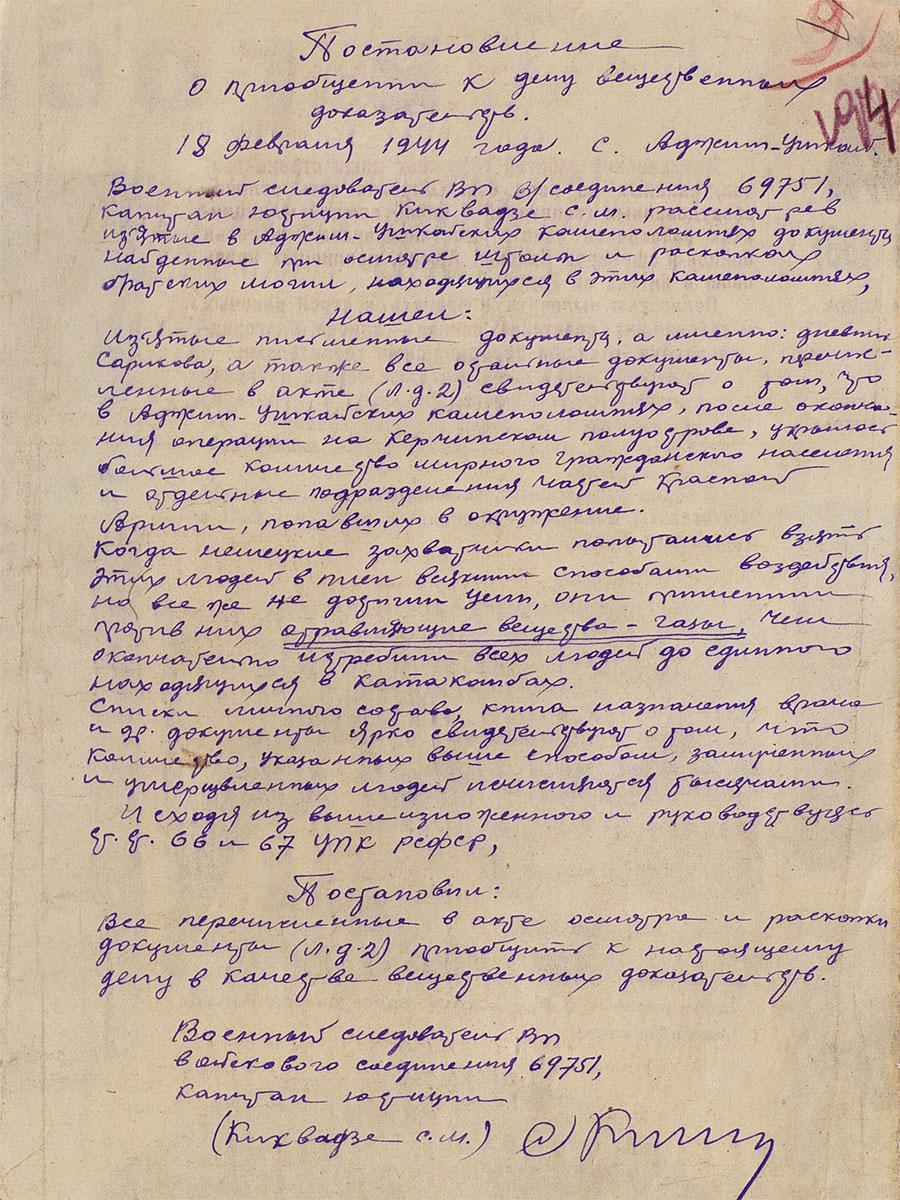 Постановление
о приобщении к делу вещественных
доказательств.
18 февраля 1944 года. с. Аджим-Ушкай.
Военный следователь ВП в/соединения 69751,
капитан юстиции Киквадзе с.м. рассмотрев
изъятые в Аджим-Ушкайских каменоломнях документы
найденные при осмотре штолен и раскопках
братских могил, находящихся в этих каменоломнях,
Нашел:
Изъятые письменные документы, а именно: дневник
Сарикова, а также все остальные документы, перечис-
ленные в акте (л.д.2) свидетельствуют о том, что
в Аджим-Ушкайских каменоломнях, после оконча-
ния операции на Керчинском полуострове, укрылось
большое количество мирного гражданского населения
и отдельные подразделения частей Красной
Армии, попавших в окружение.
Когда немецкие захватчики попытались взять
этих людей в плен всякими способами воздействия,
но все же не достигли цели, они применили
против них отравляющие вещества - газы, чем
окончательно истребили всех людей до единого
находящихся в катакомбах.
Списки личного состава, книга назначения врача
и др. документы ярко свидетельствуют о том, что
количество, указанных выше способом, замученных
и умерщвленных людей исчисляются тысячами.
Исходя из вышеизложенного и руководствуясь
ст.ст. 66 и 67 УПК РСФСР,
Постановил:
Все перечисленные в акте осмотра и раскопки
документы (л.д.2) приобщить к настоящему
делу в качестве вещественных доказательств.
Военный следователь ВП
войскового соединения 69751,
капитан юстиции
(Киквадзе с.м.)